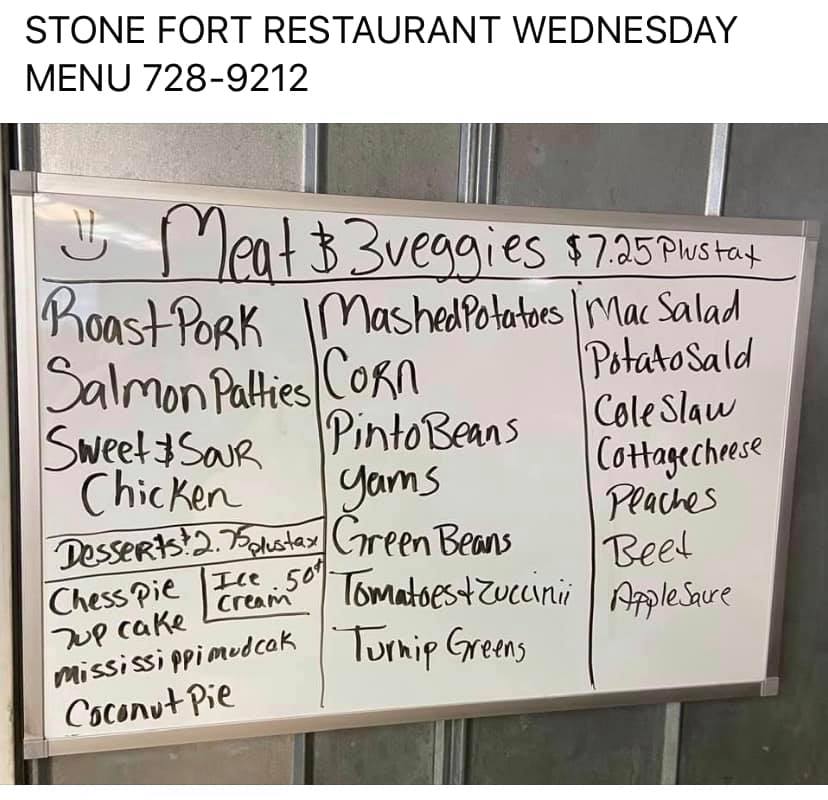 STONE FORT RESTAURANT WEDNESDAY
MENU 728-9212
Meat & 3veggies $7.25 Plus tax
Roast Pork
Salmon Patties
Sweet & Sour
Chicken
Desserts! 2.75 plus tax
Chess Pie
7up cake
mississippi mud cak
Coconut Pie
Ice .50¢
Cream
Mashed Potatoes
Corn
Pinto Beans
yams
Green Beans
Tomatoes & Zuccinii
Turnip Greens
Mac Salad
Potato Sald
Cole Slaw
Cottage cheese
Peaches
Beet
Apple Saure